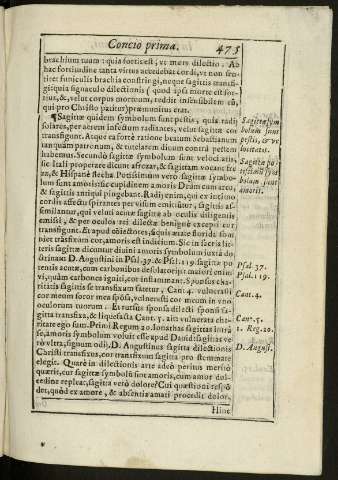 Concio prima. 475
brachium tuum: quia fortis est, ut mors dilectio. Ab
hac fortitudine tanta virtus accedebat cordi, ut non sen-
tiret funiculis brachia constringi, neque sagittis transfi-
git quia signaculo dilectionis (quod ipsa morte est for-
tius, &, velut corpus mortuum, reddit insensibilem eũ,
qui pro Christo patitur) præmunitus erat.
¶ Sagittæ quidem symbolum sunt pestis, quia radij
solares, per aerem infectum radiantes, velut sagittæ cor
transfigunt. Atque ea fortè ratione beatum Sebastianum
tanquàm patronum, & tutelarem dicunt contra pestem
habemus. Secundò sagittæ symbolum sunt velocitatis,
sic Itali properare dicunt afrezar, & sagittam vocant fre
za, & Hispanè flecha. Potissimùm verò sagittæ symbo-
lum sunt amoris: sic cupidinem amoris Deum cum arcu,
& sagittis antiqui pingebant. Radij enim, qui ex intimo
cordis affectu spirantes per visum emittũtur, sagittis as-
similantur, qui veluti acutæ sagittæ ab oculis diligentis
emissi, & per oculos rei dilectæ benignè excepti cor
transfigunt. Et apud obiectores, si quis ætate florida
fuit trãsfixam cor, amoris est indicium. Sic in sacris lit-
teris sagittæ dicuntur divini amoris symbolum juxtà do-
ctrinam D. Augustini in Psal. 37. & Psal. 119. sagittæ po
tentis acutæ, cum carbonibus desolatorijs: maiori enim
vi, quàm carbones igniti, cor inflammant. Sponsus cha-
ritatis sagittis se transfixum fatetur, Cant. 4. vulnerasti
cor meum soror mea spõsa, vulnerasti cor meum in vno
oculorum tuorum. Et rursus sponsa dilecti sponsi sa-
gitta transfixa, & liquefacta Cant. 5. ait: vulnerata cha-
ritate ego sum. Primi Regum 20. Jonathas sagittas mitte-
re, amoris symbolum voluit esse apud David: sagittas ve
rò vltra, signum odij. D. Augustinus sagitta dilectionis
Christi transfixus, cor transfixum sagitta pro stemmate
elegit. Quare in dilectionis arte adeò perius meritò
quærit, cur sagittæ symbolũ sint amoris, cum amor dul-
cedine repleat, sagitta verò dolore? Cui quæstioni respõ
det, quòd ex amore, & absentia amati procedit dolor.
Hinc
Sagittæ sym
bolum sunt
pestis, & ve
locitatis.
Sagittæ po
tissimũ sym
bolum sunt
amoris.
Psal. 37.
Psal. 119.
Cant. 4.
Cant. 5.
1. Reg. 20.
D. August.